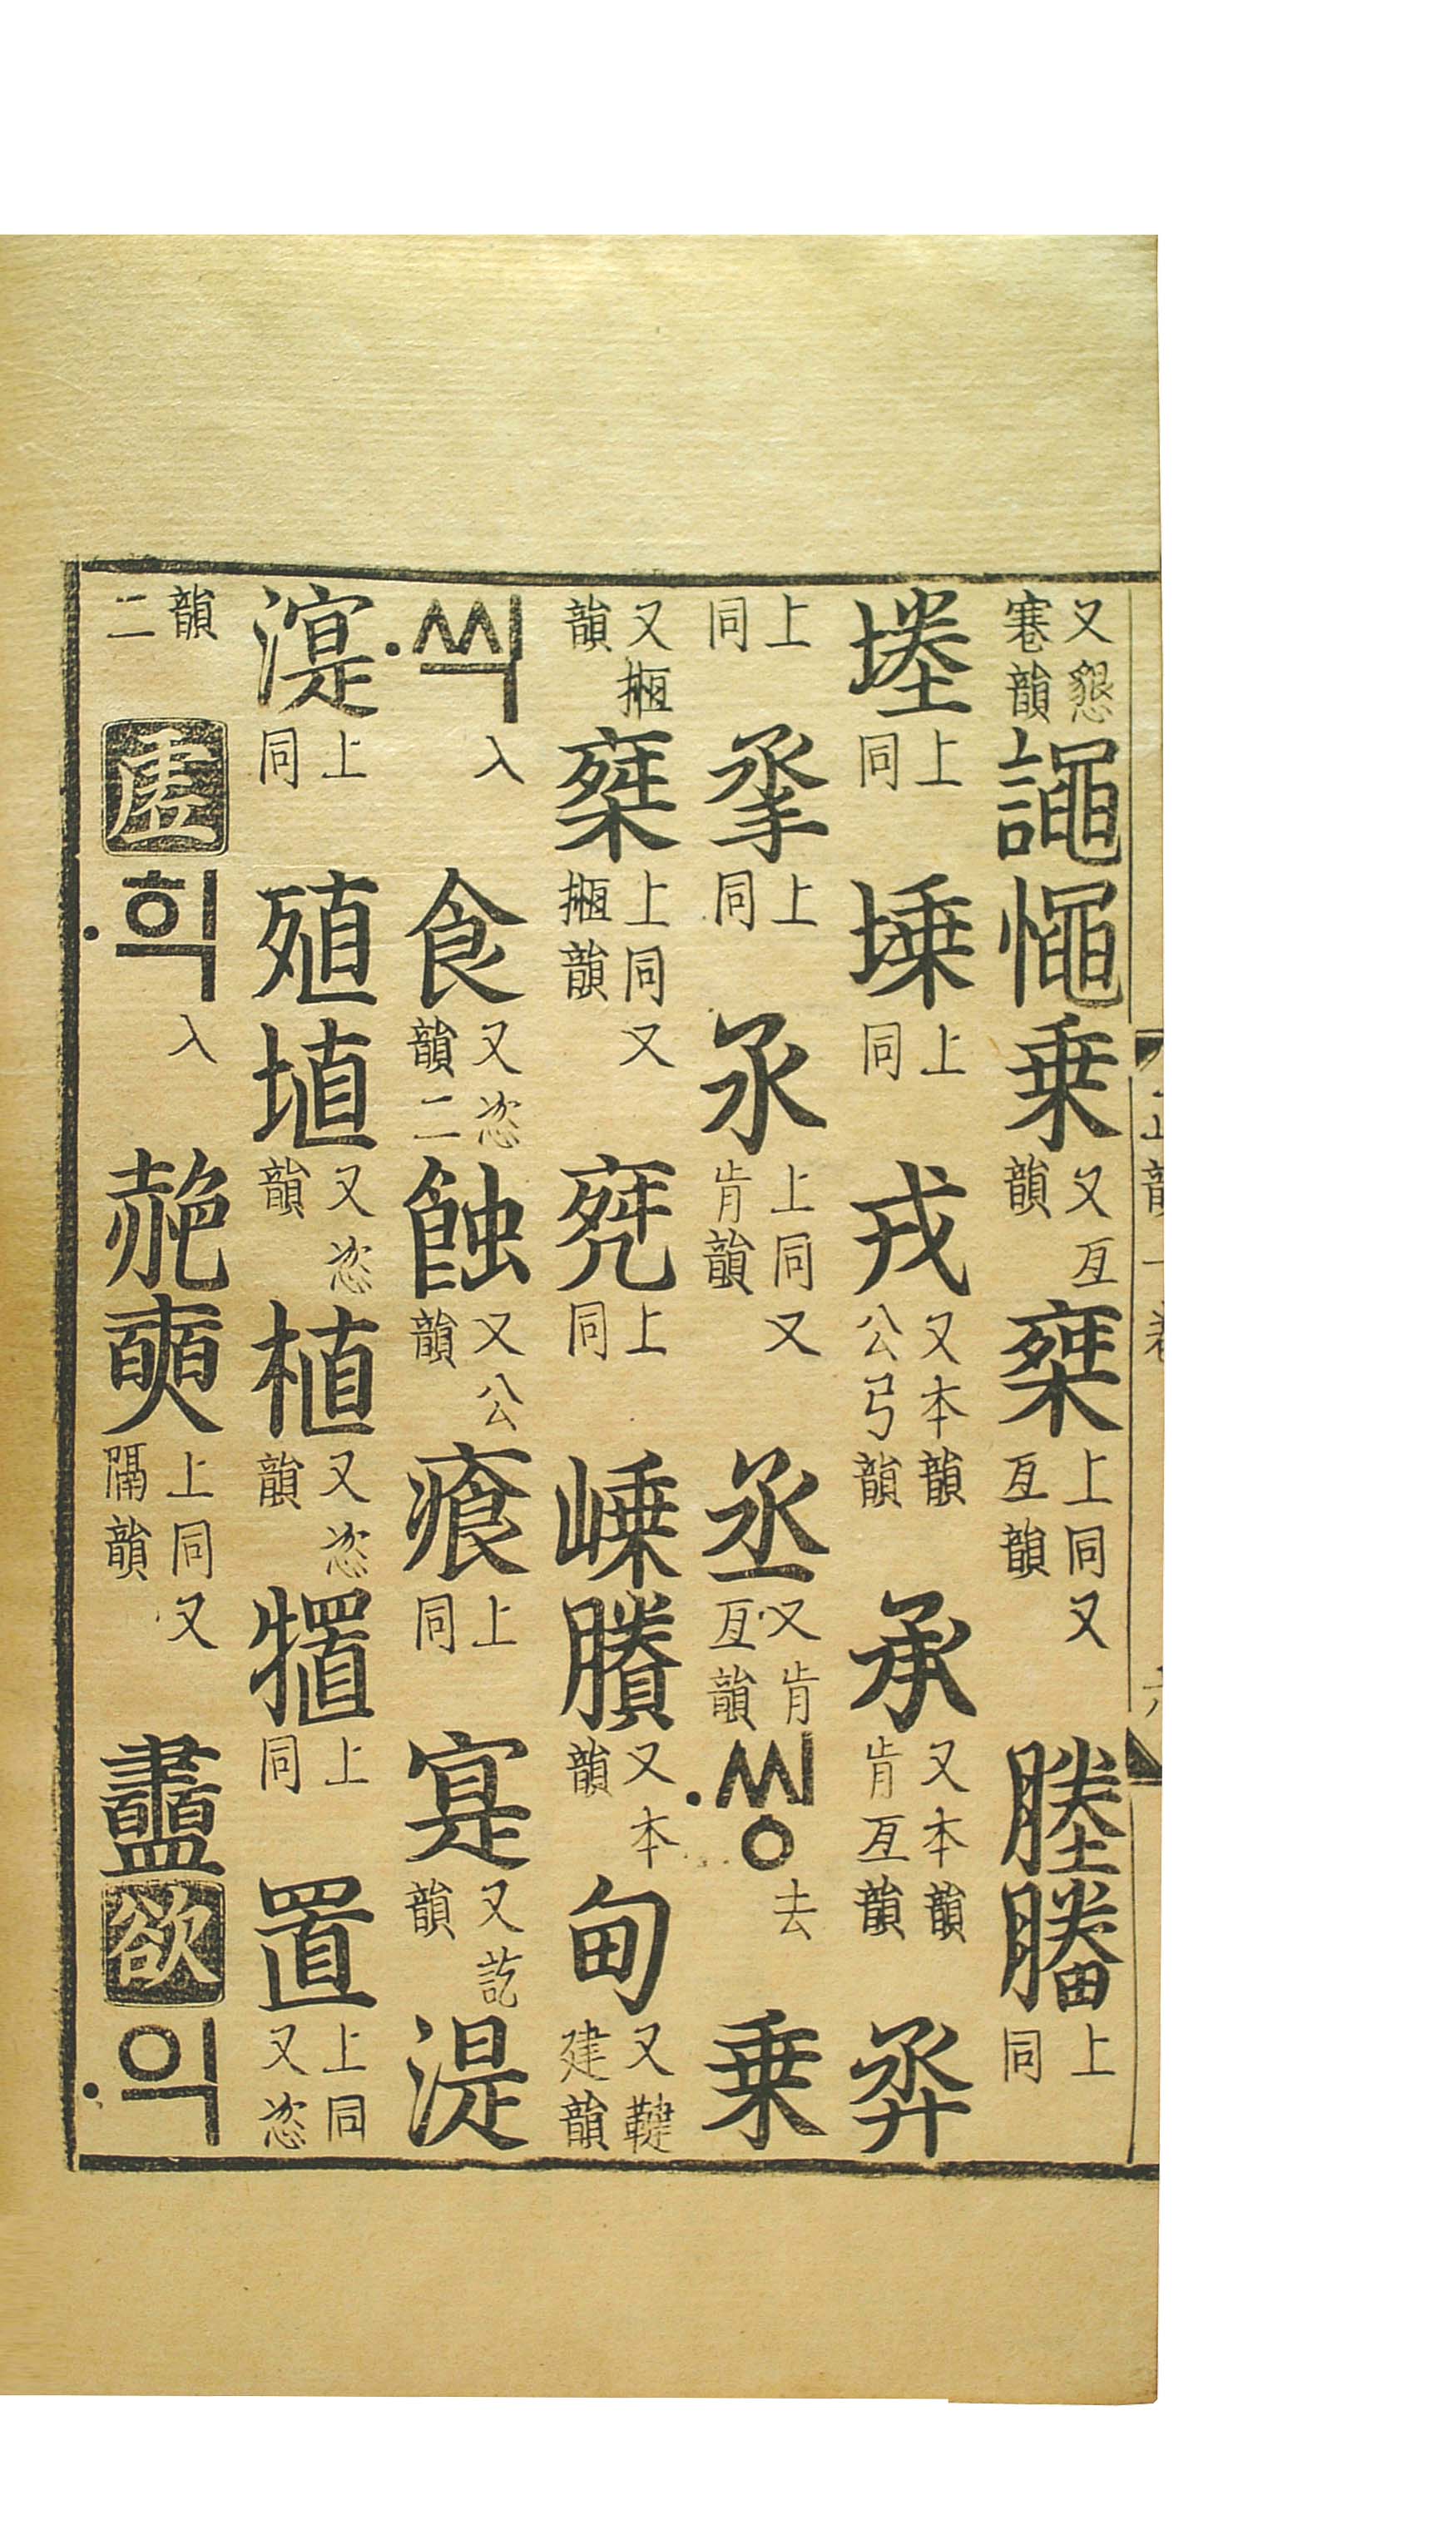 又懇寋韻 譝 憴 乗 又亙韻 椉 上同又亙韻 塍 𦡊 上同
堘 上同 塖 上同 戎 又本韻公弓韻 承 又本韻肯亙韻 𢍏
上同 𢪬 上同 氶 上同又肯韻 丞 又肯亙韻 씽 去 乗
又搄韻 椉 上同又搄韻 𠅞 上同 嵊 賸 又本韻 甸 又鞬建韻
씩 入 食 又恣韻二 蝕 又公韻 𤸱 上同 寔 又訖韻 湜
𣾰 上同 殖 埴 又恣韻 植 又恣韻 犆 上同 置 上同又恣
韻二 虛 힉 入 赩 奭 上同又隔韻 衋 欲 익